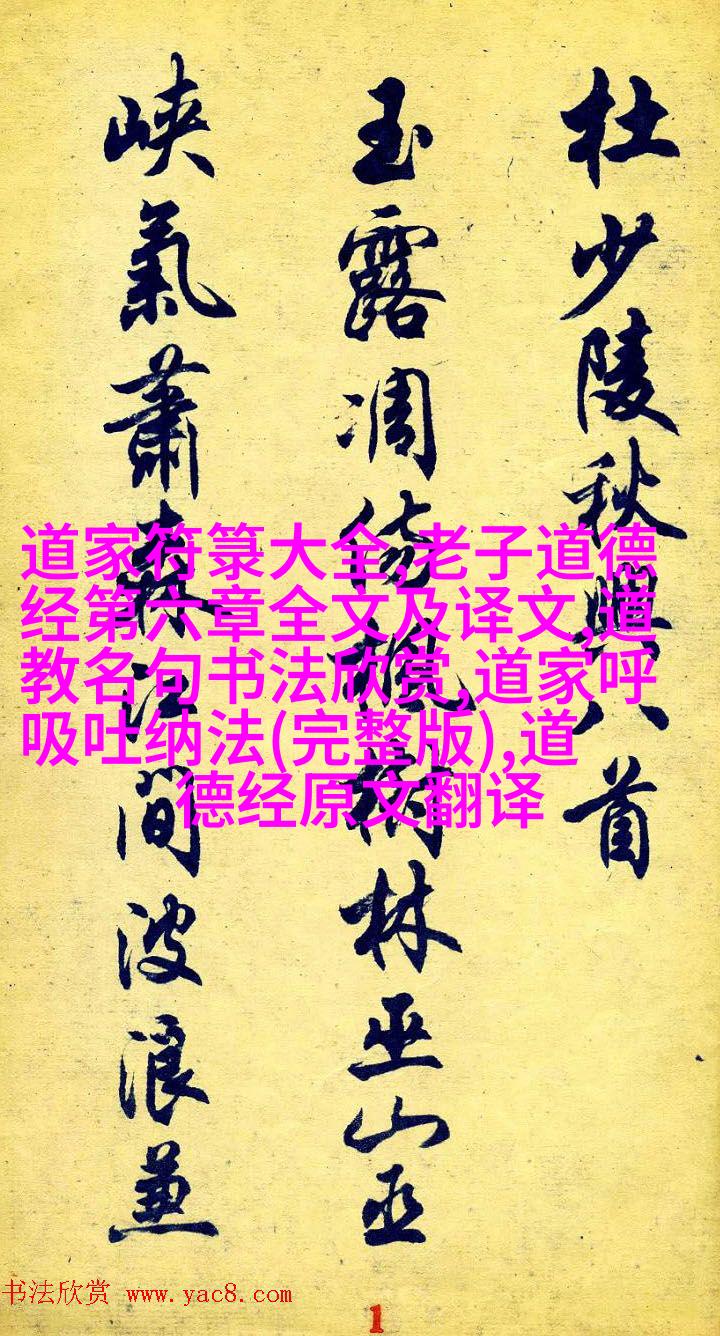 杜少陵秋興八首
玉露凋傷楓樹林巫山巫
峽氣蕭森江間波浪兼
道家符箓大全,老子道德
经第六章全文及译文,道
教名句书法欣赏,道家呼
吸吐纳法(完整版),道
德经原文翻译
书法欣赏 www.yac8.com
1